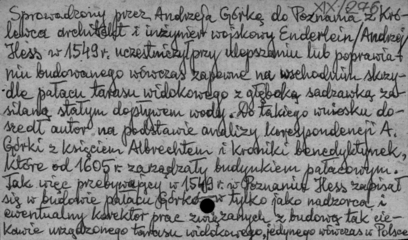 XX/1296
Sprowadzony przez Andrzeja Górkę do Poznania z Kró-
lewca architekt i inżynier wojskowy Enderlein/Andrzej/
Hess w 1549 r. uczestniczył przy ulepszaniu lub poprawia-
niu budowanego wówczas zapewne na wschodnim skrzy-
dle pałacu tarasu widokowego z głęboką sadzawką za-
silaną stałym dopływem wody. Do takiego wniosku do-
szedł autor na podstawie analizy korespondencji A.
Górki z księciem Albrechtem i kroniki benedyktynek,
które od 1605 r. zarządzały budynkiem pałacowym.
Tak więc przebywający w 1549 r. w Poznaniu Hess zapisał
się w budowie pałacu Górków tylko jako nadzorca i
ewentualny korektor prac związanych z budową tak cie-
kawie urządzonego tarasu widokowego, jedynego wówczas w Polsce